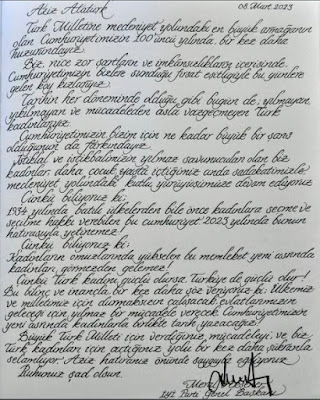 Aziz Atatürk 08 Mart 2023
Türk Milletine medeniyet yolundaki en büyük armağanın
olan Cumhuriyetimizin 100'üncü yılında, bir kez daha
huzurundayız.
Biz, nice zor şartların ve imkânsızlıkların içerisinde
Cumhuriyetimizin bizlere sunduğu fırsat eşitliğiyle bu günlere
gelen köy kızlarıyız.
Tarihin her döneminde olduğu gibi bugün de; yılmayan,
yıkılmayan ve mücadeleden asla vazgeçmeyen Türk
kadınlarıyız.
Cumhuriyetimizin bizim için ne kadar büyük bir şans
olduğunun da farkındayız.
İstiklal ve istikbalimizin yılmaz savunucuları olan biz
kadınlar; daha çocuk yaşta içtiğimiz anda sadakatimizle
medeniyet yolundaki kutlu yürüyüşümüze devam ediyoruz
Çünkü biliyoruz ki;
1934 yılında batılı ülkelerden bile önce kadınlara seçme ve
seçilme hakkı verilebilen bu cumhuriyet 2023 yılında bunun
hatırasıyla yetinemez!
Çünkü biliyoruz ki;
Kadınların omuzlarında yükselen bu memleket yeni asrında
kadınları görmezden gelemez!
Çünkü Türk kadını güçlü olursa, Türkiye de güçlü olur!
Bu bilinç ve inançla, bir kez daha söz veriyoruz ki: Ülkemiz
ve milletimiz için durmaksızın çalışacak, evlatlarımızın
geleceği için yılmaz bir mücadele verecek, Cumhuriyetimizin
yeni asrında kadınlarla birlikte tarih yazacağız!
Büyük Türk Milleti için verdiğiniz mücadeleyi ve biz
Türk kadınları için açtığınız yolu bir kez daha şükranla
selamlıyor; Aziz hatıranız önünde saygıyla eğiliyoruz
Ruhunuz şad olsun.
Meral Akşener
İYİ Parti Genel Başkanı